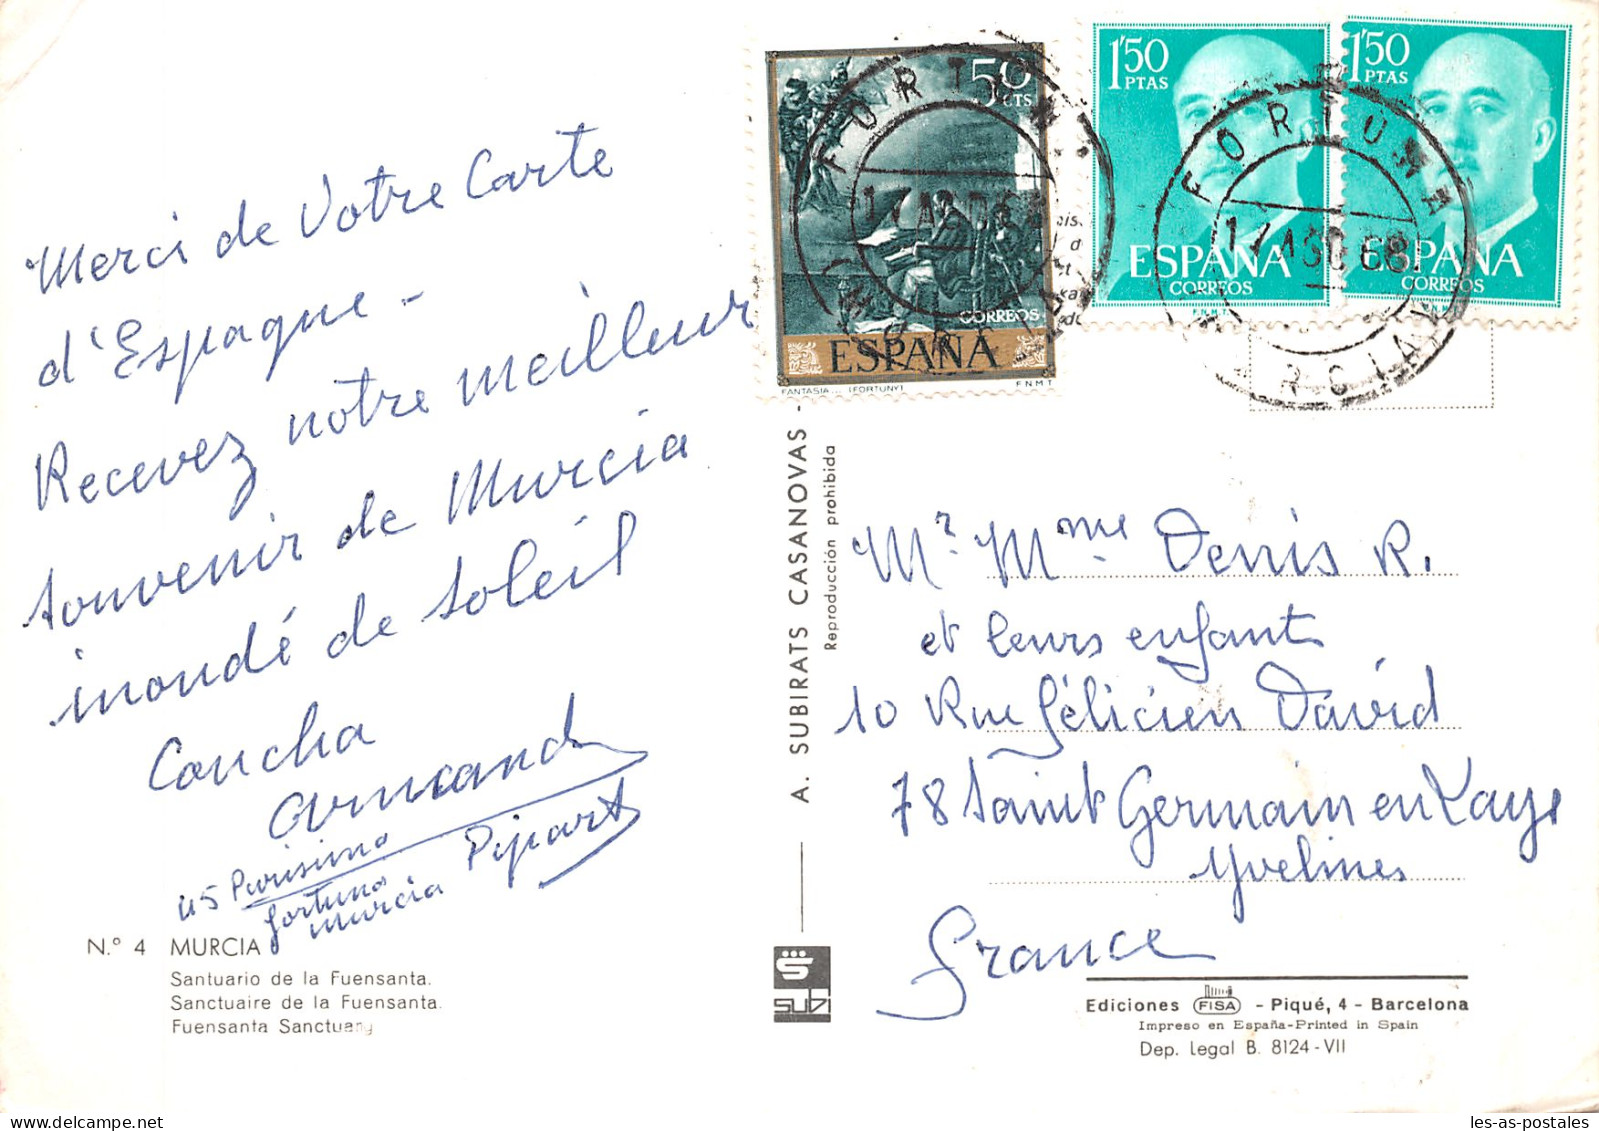 Merci de Votre Carte
d'Espagne -
Recevez notre meilleur
souvenir de Murcia
inondé de soleil
Concha
Armand
Pipart
45 Purisima
Fortuna
Murcia
N.º 4 MURCIA
Santuario de la Fuensanta.
Sanctuaire de la Fuensanta.
Fuensanta Sanctuary
A. SUBIRATS CASANOVAS -
Reproducción prohibida
subi
50 CTS
CORREOS
ESPAÑA
FANTASIA... (FORTUNY) F.N.M.T
1'50 PTAS
ESPAÑA
CORREOS
F.N.M.T.
1'50 PTAS
ESPAÑA
CORREOS
FORTUNA
17 AGO 68
(MURCIA)
FORTUNA
17 AGO 68
(MURCIA)
Mr Mme Denis R.
et leurs enfants
10 Rue Félicien David
78 Saint Germain en Laye
Yvelines
France
Ediciones FISA - Piqué, 4 - Barcelona
Impreso en España-Printed in Spain
Dep. Legal B. 8124-VII
les-as-postales